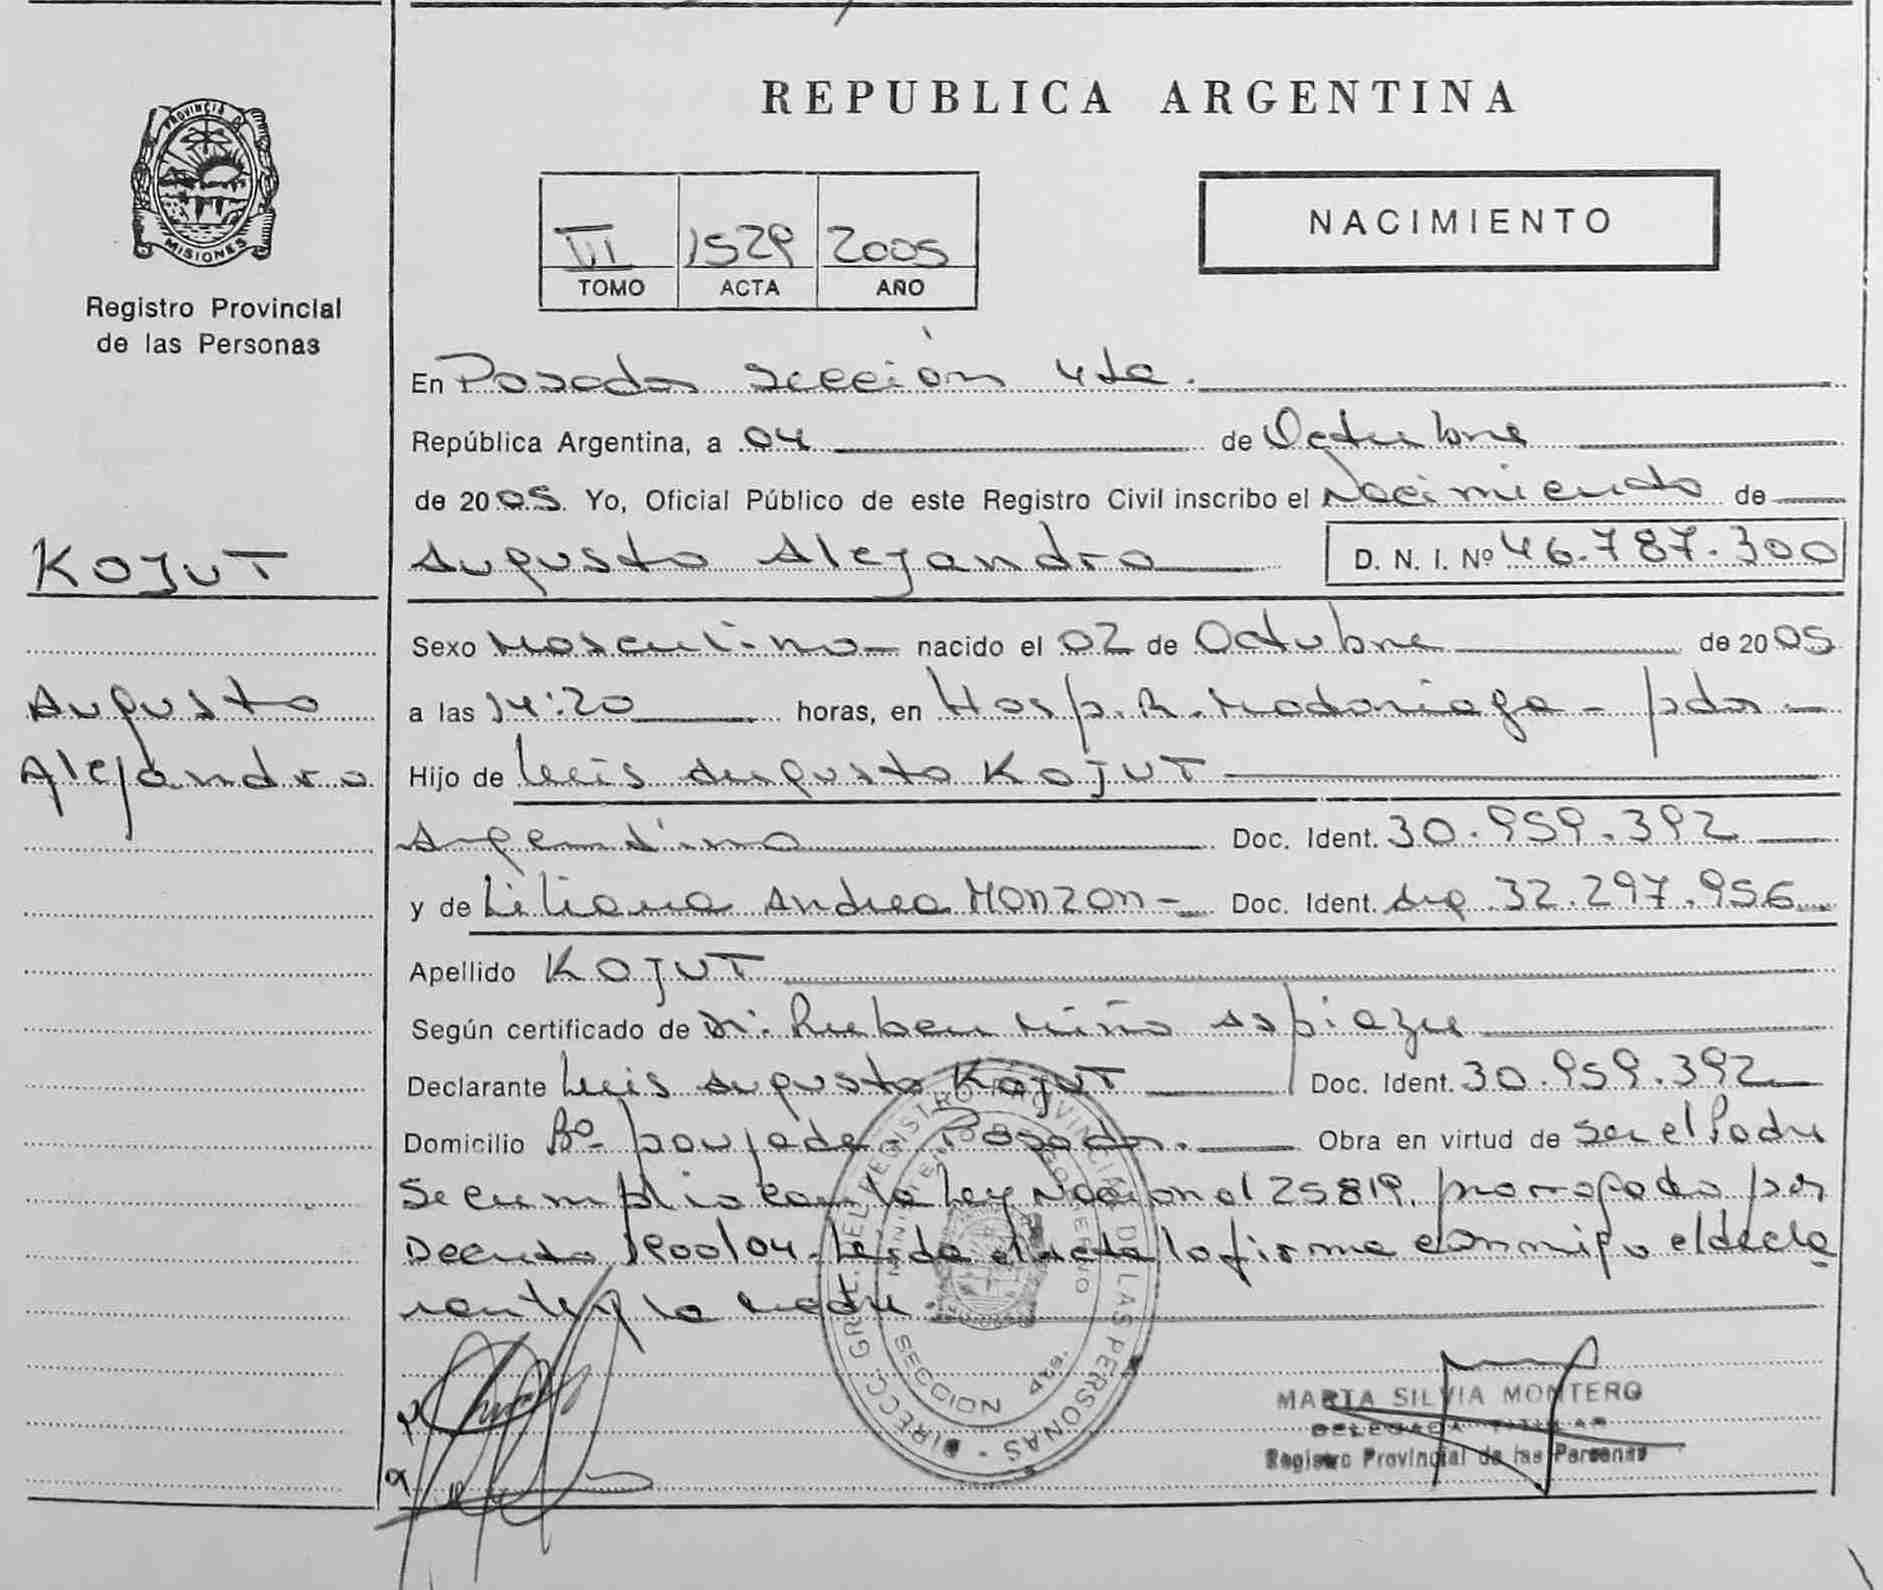 REPUBLICA ARGENTINA
PROVINCIA DE
MISIONES
Registro Provincial
de las Personas
NACIMIENTO
III 1529 2005
TOMO ACTA AÑO
En Posadas sección 4ta.
República Argentina, a 04 de Octubre
de 2005. Yo, Oficial Público de este Registro Civil inscribo el Nacimiento de
KOJUT
Augusto Alejandro D. N. I. Nº 46.787.300
Sexo Masculino nacido el 02 de Octubre de 2005
Augusto
a las 14:20 horas, en Hosp. R. Madariaga - pdas
Alejandro
Hijo de Luis Augusto KOJUT
Argentino Doc. Ident. 30.959.392
y de Liliana Andrea MONZON Doc. Ident. Arg. 32.297.956
Apellido KOJUT
Según certificado de Dr. Ruben Miño Aspiazu
Declarante Luis Augusto KOJUT Doc. Ident. 30.959.392
Domicilio Bº poujade - Posadas. Obra en virtud de ser el Padre
Se cumplio con la Ley Nacional 25819, prorrogado por
Decreto 1900/04. Leida el acta la firma conmigo el decla
rante y la madre.
DIRECC. GRAL. DEL REGISTRO PROVINCIAL DE LAS PERSONAS
MINISTERIO DE GOBIERNO
SECCION 4ta.
MARTA SILVIA MONTERO
DELEGADA TITULAR
Registro Provincial de las Personas